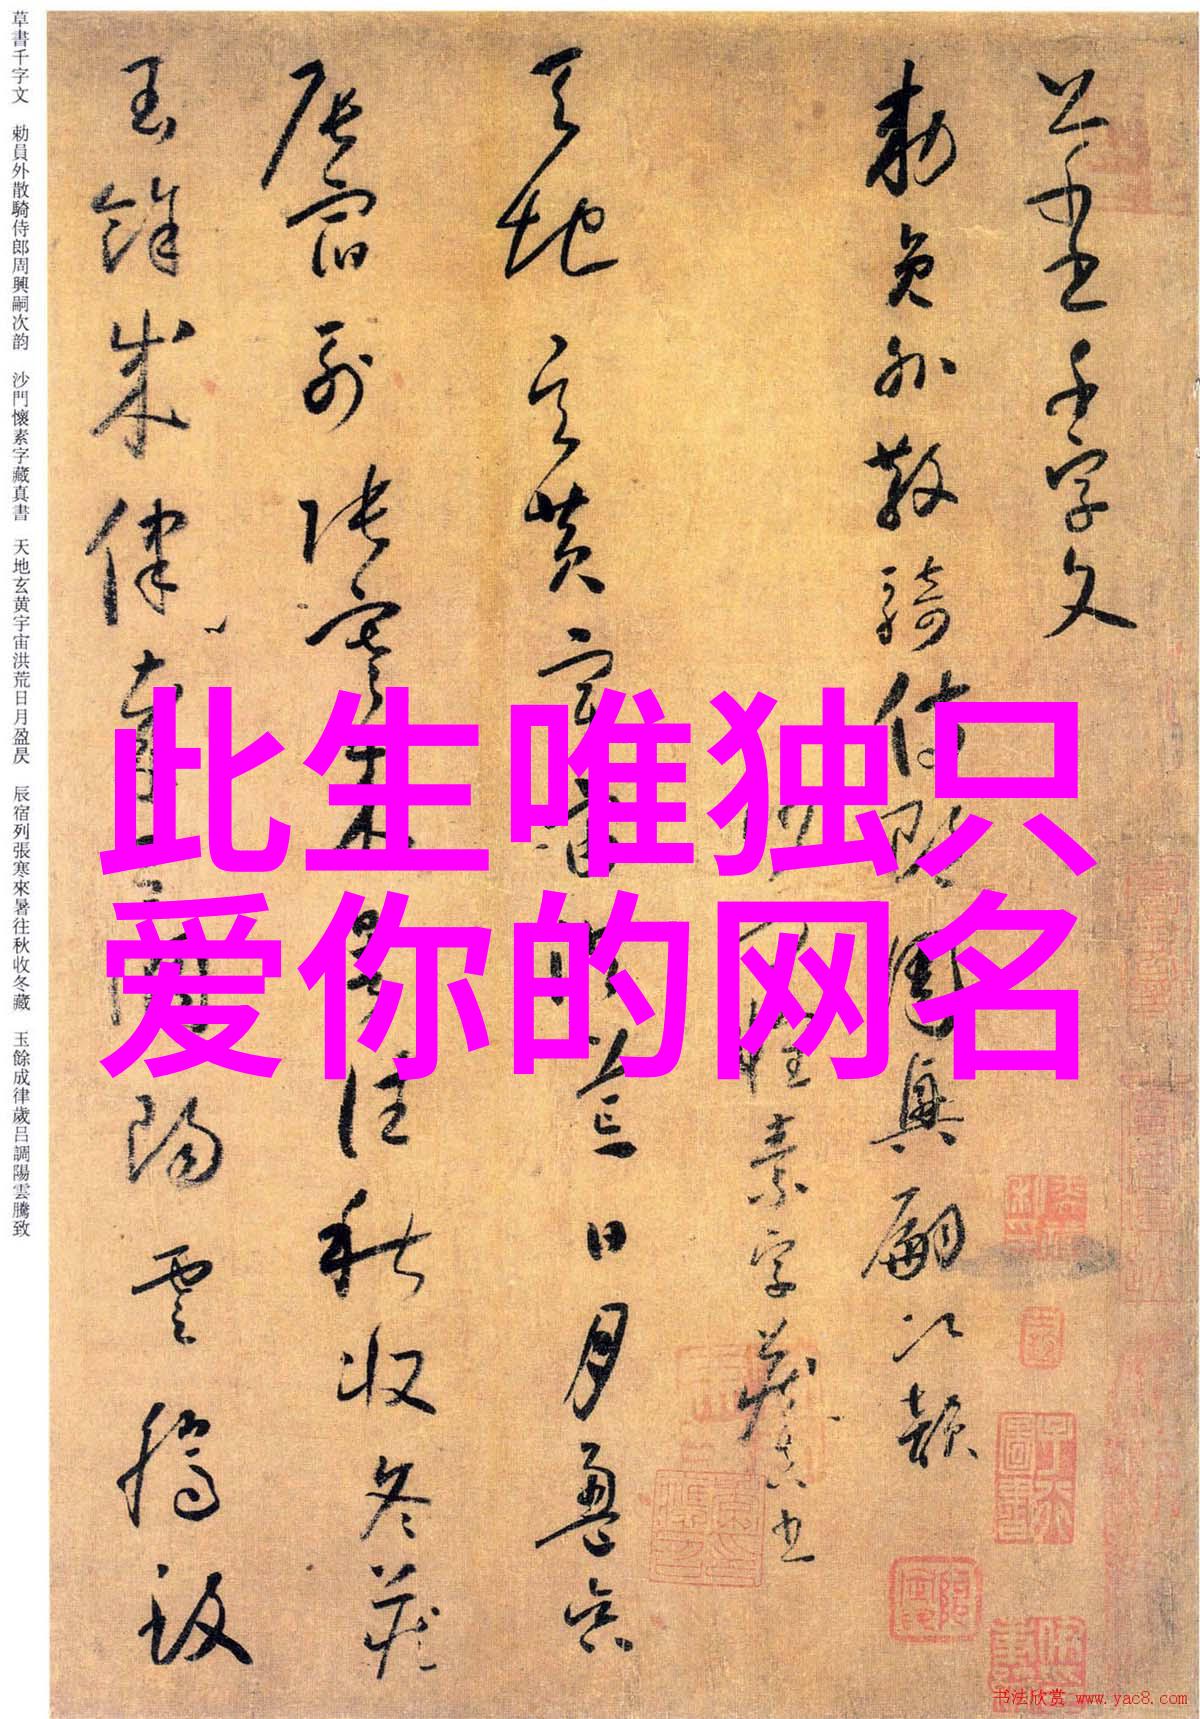 草書千字文 勅員外散騎侍郎周興嗣次韵 沙門懷素字藏真書 天地玄黄宇宙洪荒日月盈昃 辰宿列張寒來暑往秋收冬藏 玉餘成律歲吕調陽雲騰致
草書千字文
勅員外散騎侍郎周興嗣次韻
沙門懷素字藏真書
天地玄黄宇宙洪荒日月盈昃
辰宿列張寒來暑往秋收冬藏
玉餘成律歲吕調陽雲騰致
此生唯独只
爱你的网名
书法欣赏 www.yac8.com